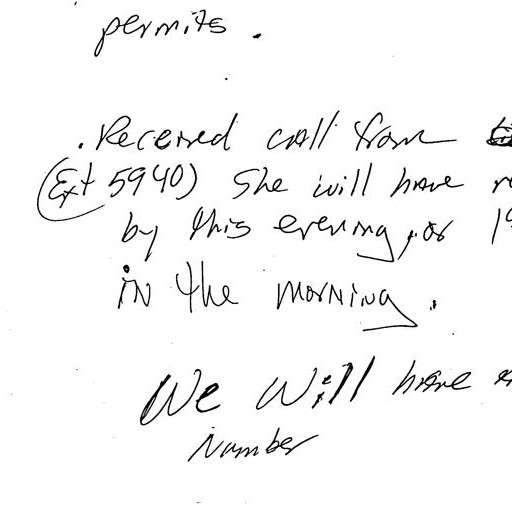 permits.
. Received call from
(Ext 5940) She will have
by this evening, or
in the morning.
We will have
Number